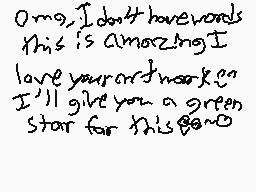 Omg, I don't have words
this is amazing I
love your artwork
I'll give you a green
star for this